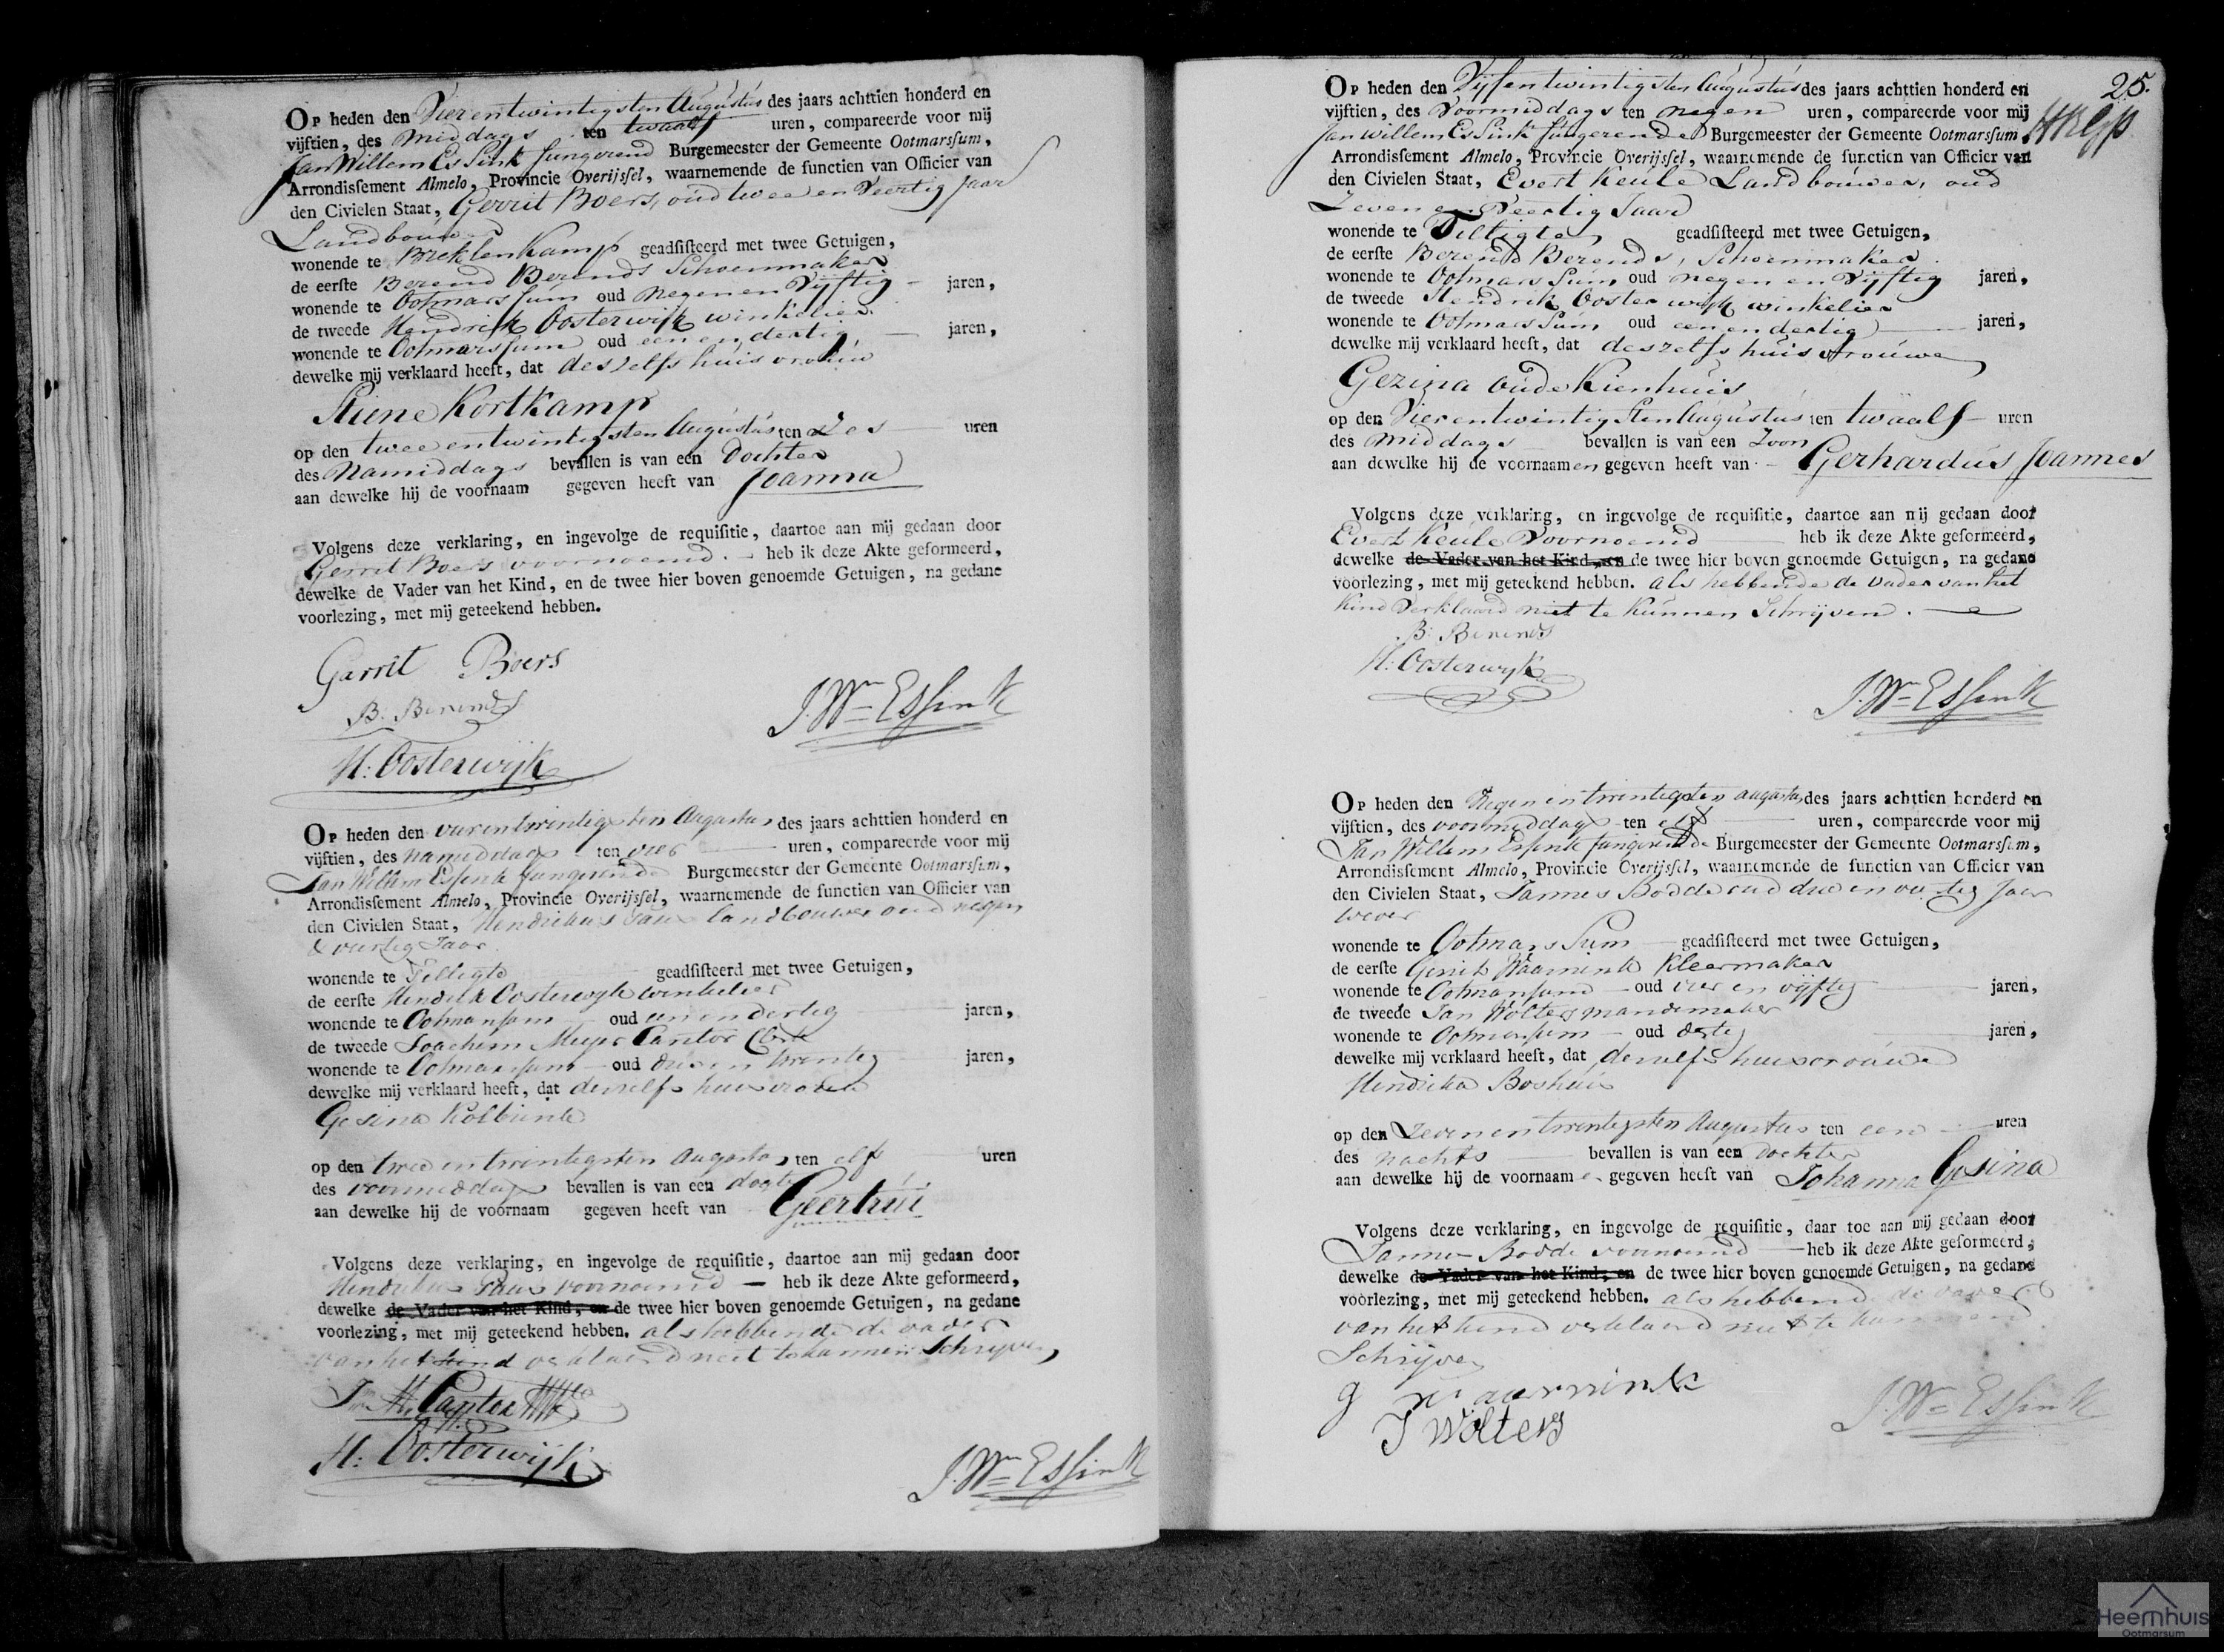 Op heden den Vierentwintigsten Augustus des jaars achttien honderd en
vijftien, des middags ten twaalf uren, compareerde voor mij
Jan Willem Essink fungerend Burgemeester der Gemeente Ootmarssum,
Arrondissement Almelo, Provincie Overijssel, waarnemende de functien van Officier van
den Civielen Staat, Gerrit Boers, oud twee en Veertig Jaar
Landbouwer
wonende te Brecklenkamp geadsisteerd met twee Getuigen,
de eerste Berend Berends Schoenmaker
wonende te Ootmarssum oud Negen en Vijftig jaren,
de tweede Hendrik Oosterwijk winkelier
wonende te Ootmarssum oud een en dertig jaren,
dewelke mij verklaard heeft, dat deszelfs huisvrouw
Stiene Kortkamp
op den twee entwintigsten Augustus ten zes uren
des Namiddags bevallen is van een Dochter
aan dewelke hij de voornaam gegeven heeft van Joanna
Volgens deze verklaring, en ingevolge de requisitie, daartoe aan mij gedaan door
Gerrit Boers voornoemd. heb ik deze Akte geformeerd,
dewelke de Vader van het Kind, en de twee hier boven genoemde Getuigen, na gedane
voorlezing, met mij geteekend hebben.
Garrit Boers
B: Berends
J. Wm Essink
H: Oosterwijk
Op heden den vierentwintigsten Augustus des jaars achttien honderd en
vijftien, des namiddags ten vier uren, compareerde voor mij
Jan Willem Essink fungerende Burgemeester der Gemeente Ootmarssum,
Arrondissement Almelo, Provincie Overijssel, waarnemende de functien van Officier van
den Civielen Staat, Hendrikus landbouwer oud negen
& veertig Jaar
wonende te Tilligte geadsisteerd met twee Getuigen,
de eerste Hendrik Oosterwyk winkelier
wonende te Ootmarssum oud een en dertig jaren,
de tweede Joachim Meyer Cantor
wonende te Ootmarssum oud drie en twintig jaren,
dewelke mij verklaard heeft, dat deszelfs huisvrouw
Gesina
op den twee en twintigsten Augustus ten elf uren
des voormiddags bevallen is van een dogter
aan dewelke hij de voornaam gegeven heeft van Geertrui
Volgens deze verklaring, en ingevolge de requisitie, daartoe aan mij gedaan door
Hendrikus voornoemd heb ik deze Akte geformeerd,
dewelke de Vader van het Kind, en de twee hier boven genoemde Getuigen, na gedane
voorlezing, met mij geteekend hebben. als hebbende de vader
van het kind verklaard niet te kunnen Schryven
Cantor
H: Oosterwijk
J. Wm Essink
25.
Op heden den Vyfentwintigsten Augustus des jaars achttien honderd en
vijftien, des Voormiddags ten negen uren, compareerde voor mij
Jan Willem Essink fungerende Burgemeester der Gemeente Ootmarssum
Arrondissement Almelo, Provincie Overijssel, waarnemende de functien van Officier van
den Civielen Staat, Evert Keule Landbouwer, oud
Zeven en Veertig Jaar
wonende te Tiltigte geadsisteerd met twee Getuigen,
de eerste Berend Berends, Schoenmaker
wonende te Ootmarssum oud negen en Vijftig jaren,
de tweede Hendrik Oosterwijk winkelier
wonende te Ootmarssum oud een en dertig jaren,
dewelke mij verklaard heeft, dat deszelfs huisvrouwe
Gezina Oude Kienhuis
op den Vierentwintigsten Augustus ten twaalf uren
des middags bevallen is van een Zoon
aan dewelke hij de voornaamen gegeven heeft van Gerhardus Joannes
Volgens deze verklaring, en ingevolge de requisitie, daartoe aan mij gedaan door
Evert Keule Voornoemd heb ik deze Akte geformeerd,
dewelke de Vader van het Kind, en de twee hier boven genoemde Getuigen, na gedane
voorlezing, met mij geteekend hebben. als hebbende de Vader van het
Kind Verklaard niet te kunnen Schrijven.
B: Berends
H: Oosterwyk
J. Wm Essink
Op heden den Negen en twintigsten augustus des jaars achttien honderd en
vijftien, des voormiddags ten elf uren, compareerde voor mij
Jan Willem Essink fungerende Burgemeester der Gemeente Ootmarssum,
Arrondissement Almelo, Provincie Overijssel, waarnemende de functien van Officier van
den Civielen Staat, Jannes Bodde oud drie en veertig Jaar
wever
wonende te Ootmarssum geadsisteerd met twee Getuigen,
de eerste Gerrit Waarnink Kleermaker
wonende te Ootmarssum oud vier en vijftig jaren,
de tweede Jan Wolters mandemaker
wonende te Ootmarssum oud dertig jaren,
dewelke mij verklaard heeft, dat deszelfs huisvrouwe
Hendrika Boshuis
op den Zevenentwintigsten Augustus ten een uren
des nachts bevallen is van een dochter
aan dewelke hij de voornaame gegeven heeft van Johanna Gesina
Volgens deze verklaring, en ingevolge de requisitie, daar toe aan mij gedaan door
Jannes Bodde voornoemd heb ik deze Akte geformeerd,
dewelke de Vader van het Kind, en de twee hier boven genoemde Getuigen, na gedane
voorlezing, met mij geteekend hebben. als hebbende de vader
van het kind verklaard niet te kunnen
Schrijven
g Waarnink
J Wolters
J. Wm Essink
Heemhuis
Ootmarsum